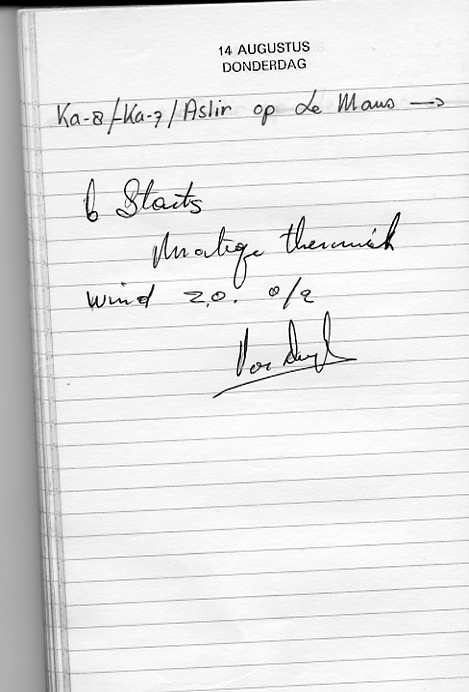 14 AUGUSTUS
DONDERDAG
Ka-8/Ka-7/Astir op Le Mans →
6 Starts
Matige thermiek
wind z.o. 0/2